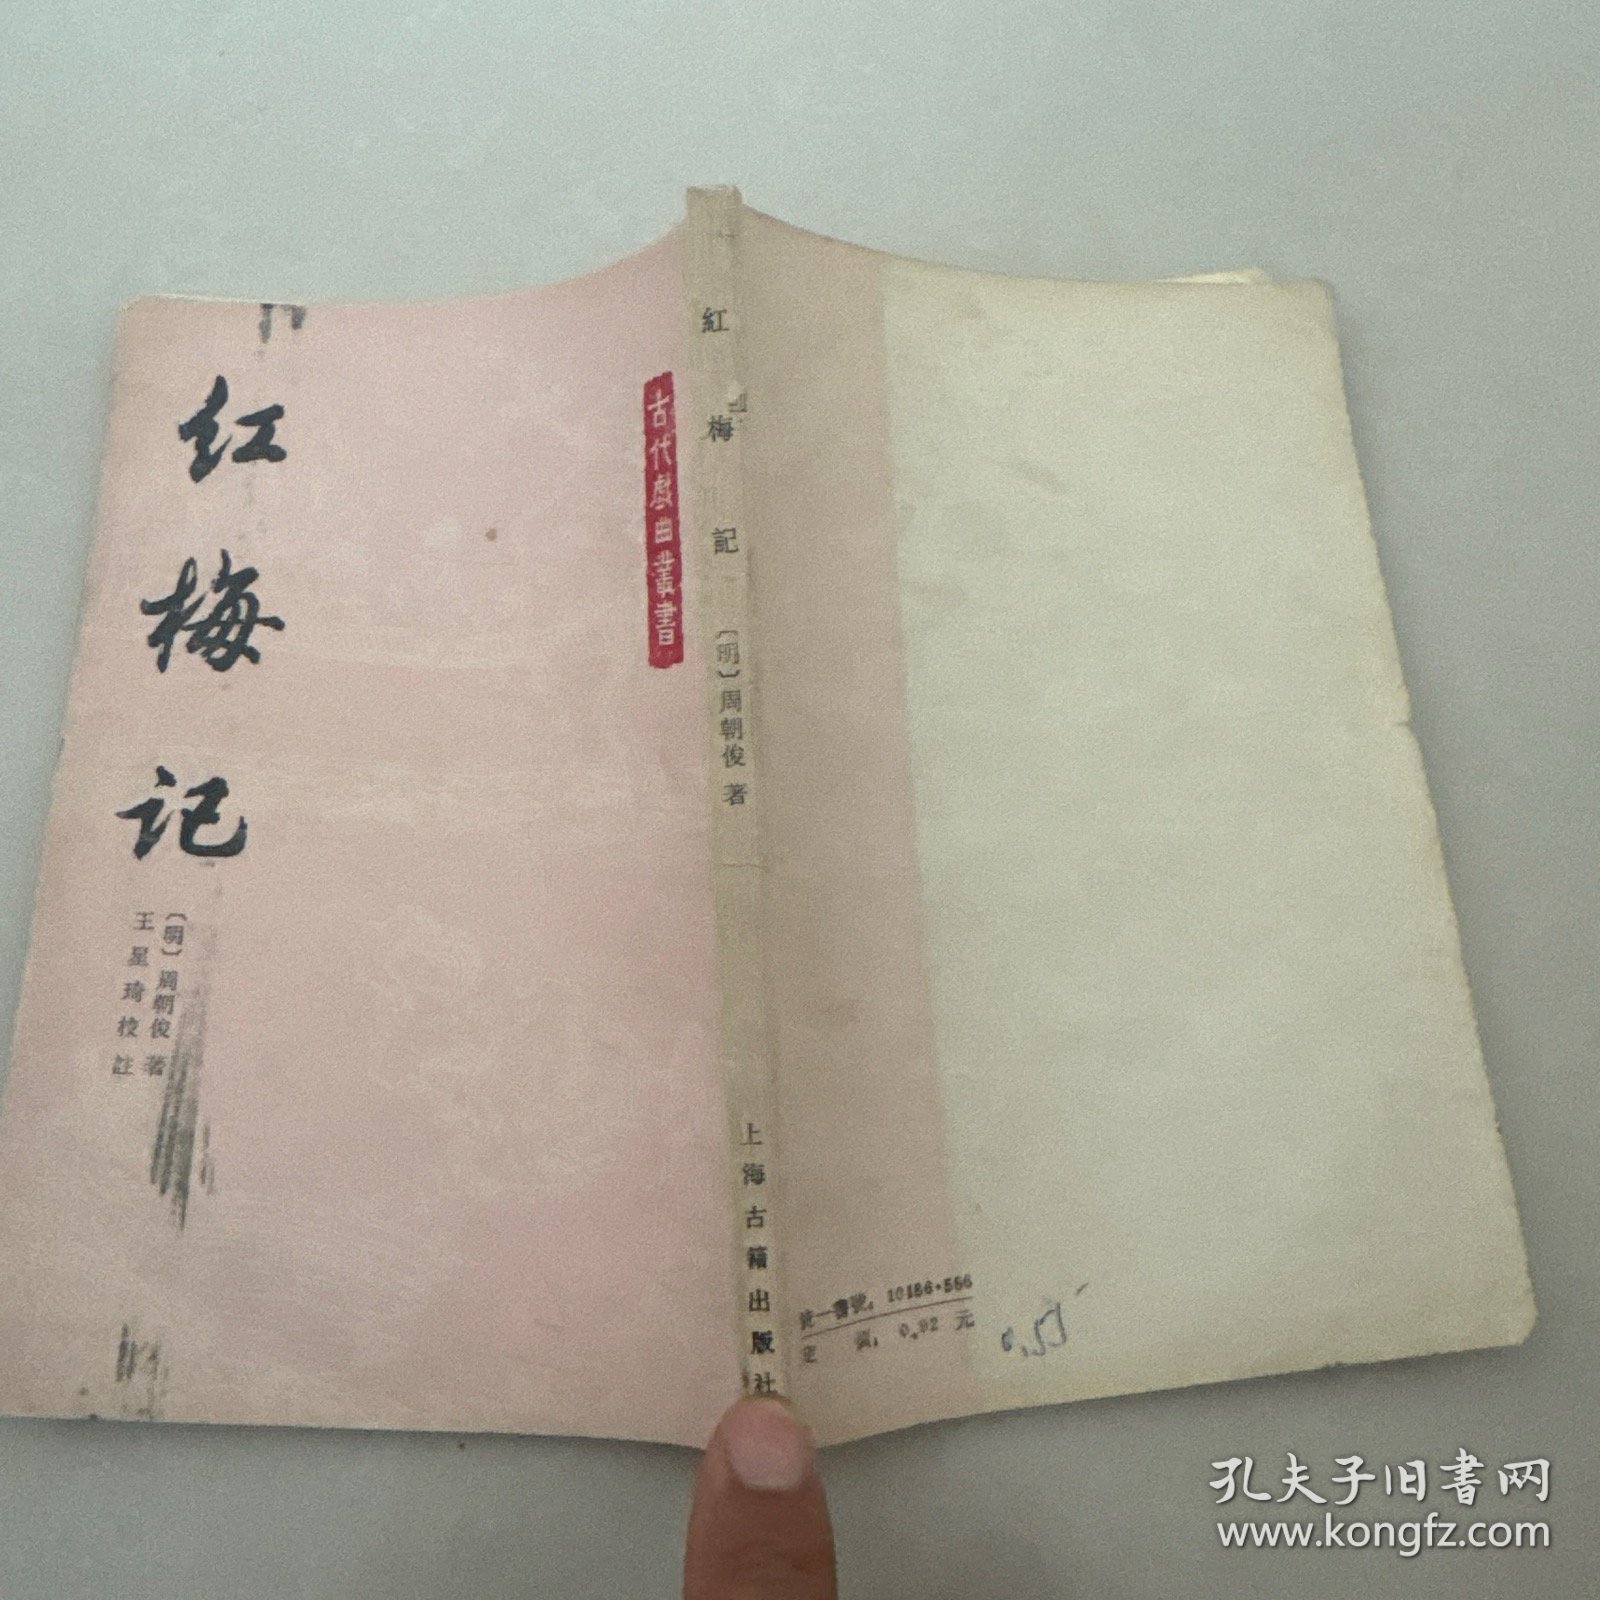 红梅记
〔明〕周朝俊著
王星琦校註
古代戲曲叢書
紅梅記
〔明〕周朝俊著
上海古籍出版社
統一書號：10186·556
定價：0.92 元
0.55
孔夫子旧书网
www.kongfz.com